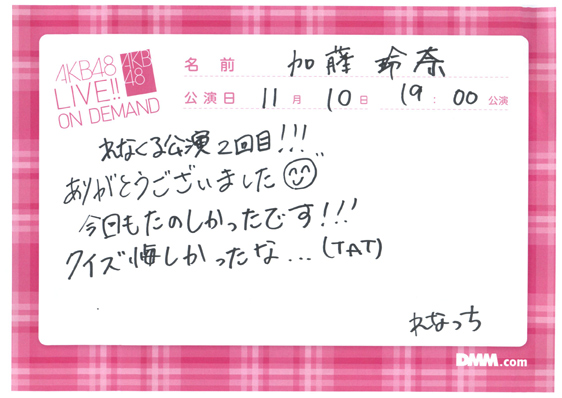 AKB48
LIVE!!
ON DEMAND
AKB
48
名前 加藤 玲奈
公演日 11月 10日 19:00公演
れなくる公演2回目!!!
ありがとうございました
今日もたのしかったです!!!
クイズ悔しかったな...(TAT)
れなっち
DMM.com